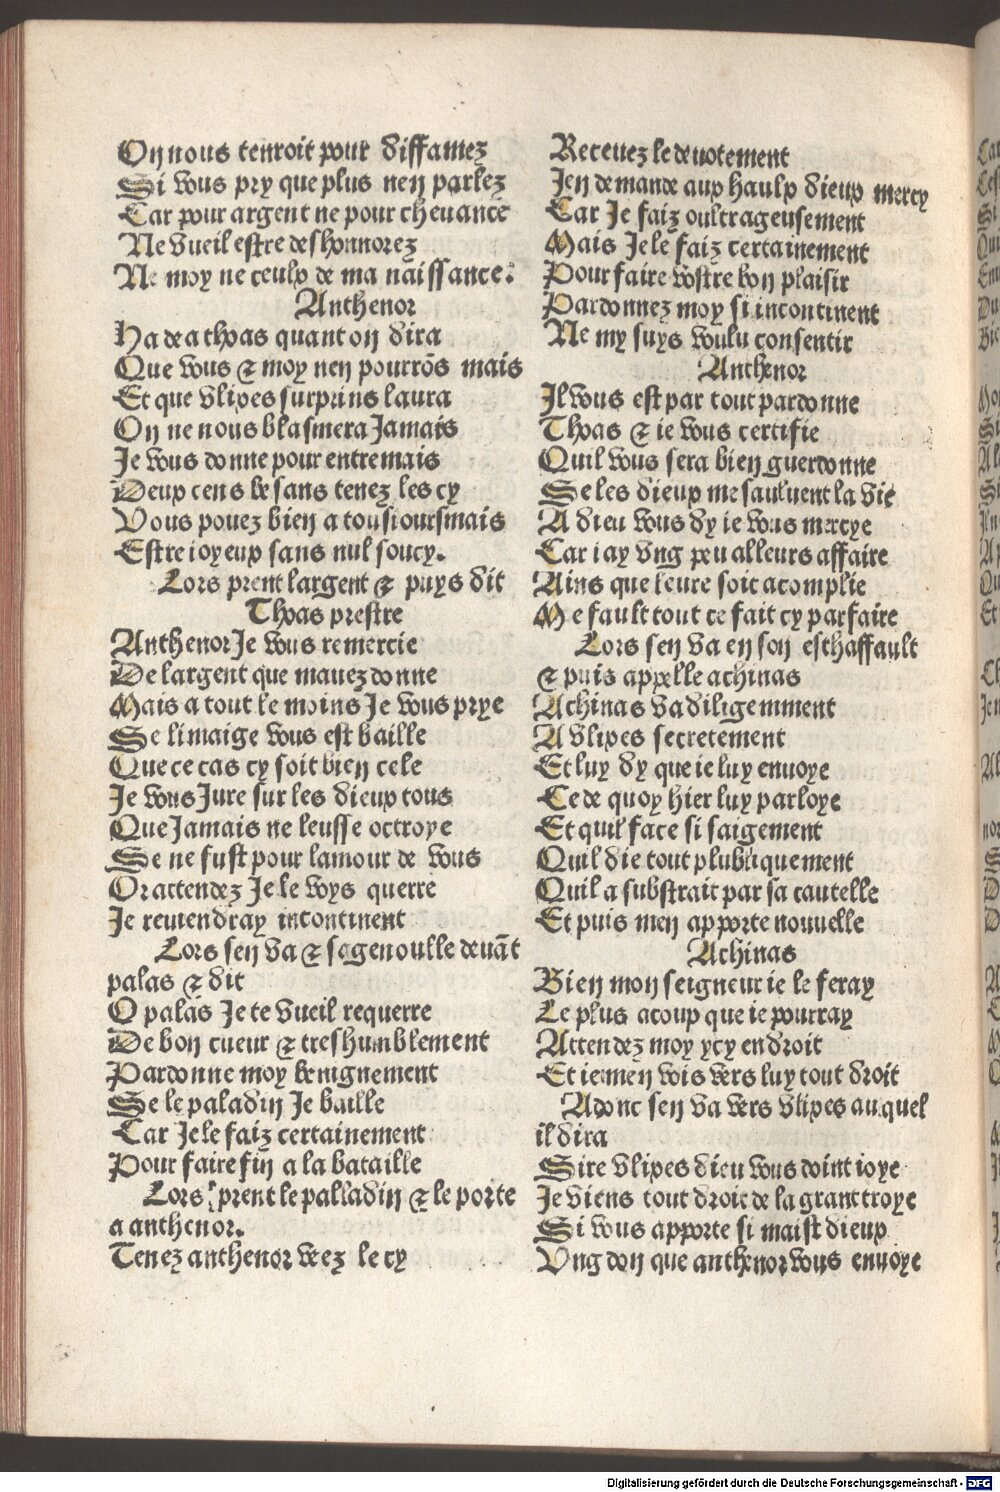 On nous tenroit pour diffamez
Si vous pry que plus nen parlez
Car pour argent ne pour chevance
Ne vueil estre deshonnorez
Ne moy ne ceulx de ma naissance.
Anthenor
Ha dea thoas quant on dira
Que vous & moy nen pourrõs mais
Et que vlixes surprins laura
On ne nous blasmera Jamais
Je vous donne pour entremais
Deux cens besans tenez les cy
Vous pouez bien a tousioursmais
Estre ioyeux sans nul soucy.
Lors prent largent & puys dit
Thoas prestre
Anthenor Je vous remercie
De largent que mauez donne
Mais a tout le moins Je vous prye
Se limaige vous est baille
Que ce cas cy soit bien cele
Je vous Jure sur les dieux tous
Que Jamais ne leusse octroye
Se ne fust pour lamour de vous
Or attendez Je le voys querre
Je reuiendray incontinent
Lors sen va & sagenoulle deuãt
palas & dit
O palas Je te vueil requerre
De bon cueur & treshumblement
Pardonne moy benignement
Se le paladin Je baille
Car Je le faiz certainement
Pour faire fin a la bataille
Lors prent le palladin & le porte
a anthenor.
Tenez anthenor veez le cy
Receuez le deuotement
Jen demande aux haulx dieux mercy
Car Je faiz oultrageusement
Mais Je le faiz certainement
Pour faire vostre bon plaisir
Pardonnez moy si incontinent
Ne my suys voulu consentir
Anthenor
Il vous est par tout pardonne
Thoas & ie vous certifie
Quil vous sera bien guerdonne
Se les dieux me sauluent la vie
A dieu vous dy ie vous mercye
Car iay vng peu alleurs affaire
Ains que leure soit acomplie
Me fault tout ce fait cy parfaire
Lors sen va en son eschaffault
& puis appelle achinas
Achinas va diligemment
A vlixes secretement
Et luy dy que ie luy enuoye
Ce de quoy hier luy parloye
Et quil face si saigement
Quil die tout plublıquement
Quil a substrait par sa cautelle
Et puis men apporte nouuelle
Achinas
Bien mon seigneur ie le feray
Le plus acoup que ie pourray
Attendez moy ycy endroit
Et ie men vois vers luy tout droit
Adonc sen va vers vlixes auquel
il dira
Sire vlixes dieu vous doint ioye
Je viens tout droit de la grant troye
Si vous apporte si maist dieux
Vng don que anthenor vous enuoye
Digitalisierung gefördert durch die Deutsche Forschungsgemeinschaft - DFG